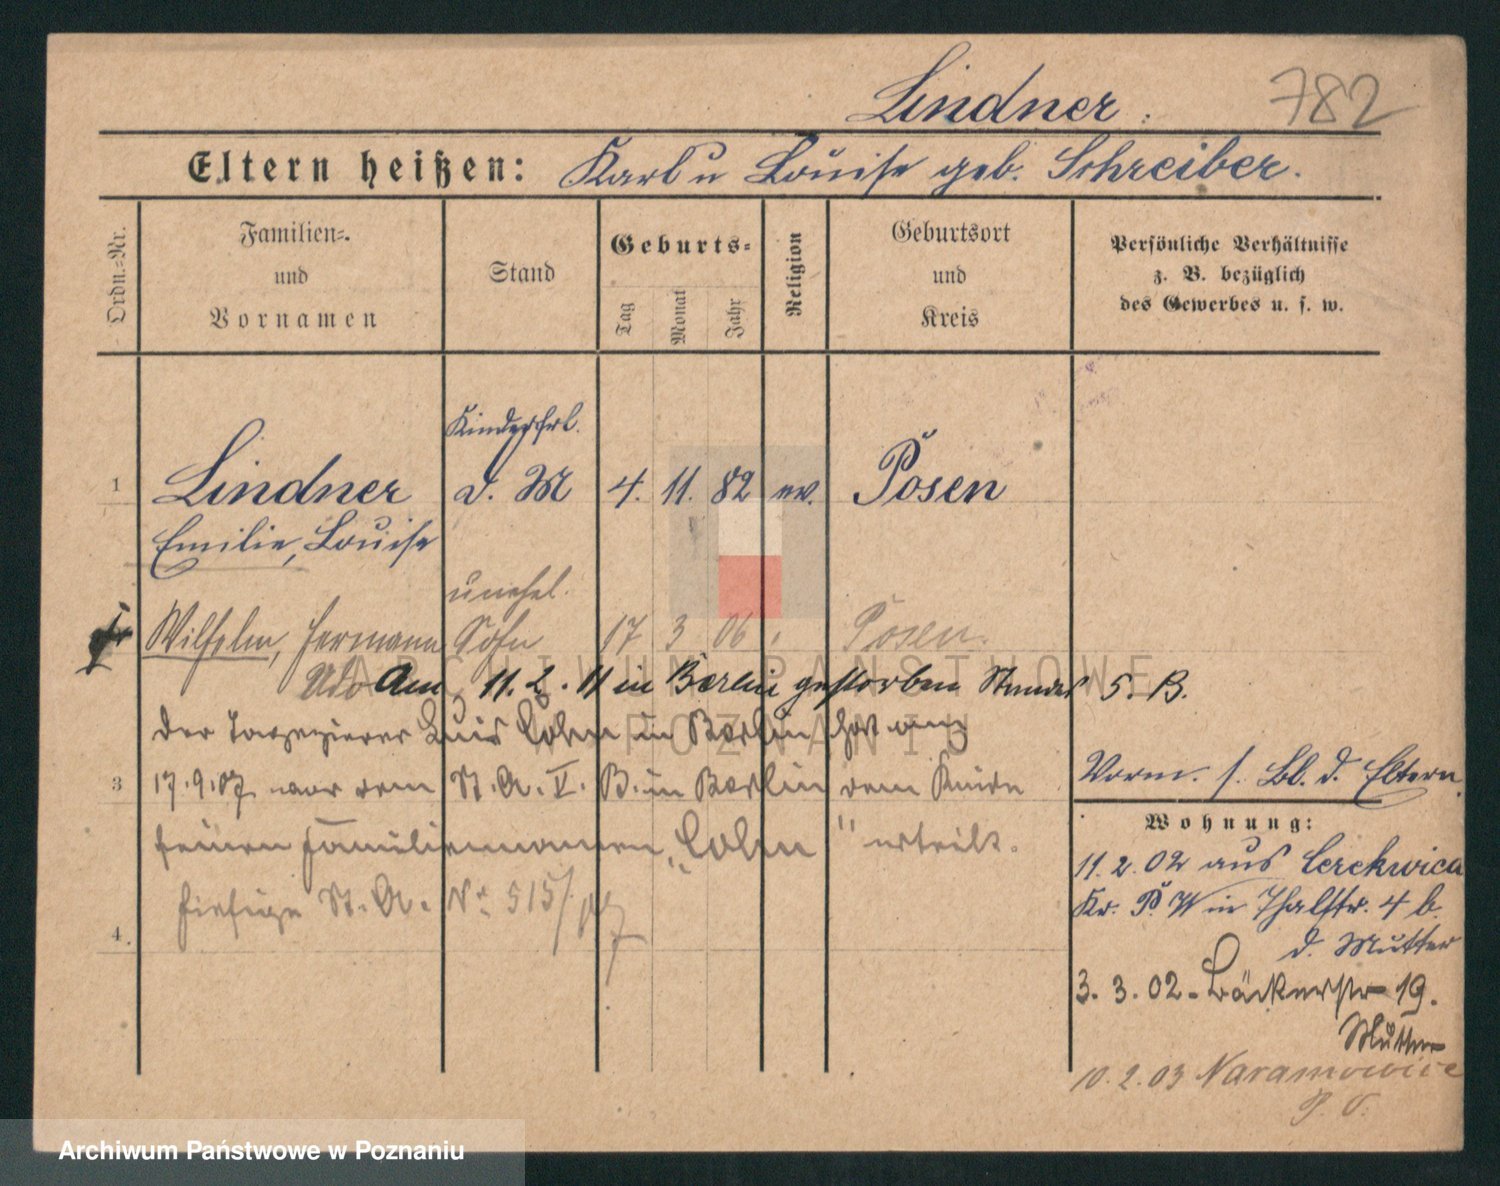 Lindner.
782
Eltern heißen: Karl u Louise geb. Schreiber.
Ordn.-Nr.
Familien=
und
Vornamen
Stand
Geburts=
Tag
Monat
Jahr
Religion
Geburtsort
und
Kreis
Persönliche Verhältnisse
z. B. bezüglich
des Gewerbes u. s. w.
Kinderfrl.
1 Lindner d. M 4. 11. 82 ev. Posen
Emilie, Louise
unehel.
Wilhelm, Hermann Sohn 17 3 06 Posen.
Udo Am 11. 2. 11 in Berlin gestorben Standes 5. B.
der Tapezierer Luis Cohn in Berlin hat am
3 17.9.07 vor dem St. A. V. B. in Berlin dem Kinde
seinen Familiennamen „Cohn" erteilt.
hiesige St. A. Nr 515/
4.
Vorm. s. Bl. d. Eltern.
Wohnung:
11.2.02 aus Cerekwica
Kr. P. W in Thalstr. 4 b.
d. Mutter
3. 3. 02 - Bäckerstr 19.
Mutter
10.2.03 Naramowice
P. O.
ARCHIWUM PAŃSTWOWE
W POZNANIU
Archiwum Państwowe w Poznaniu